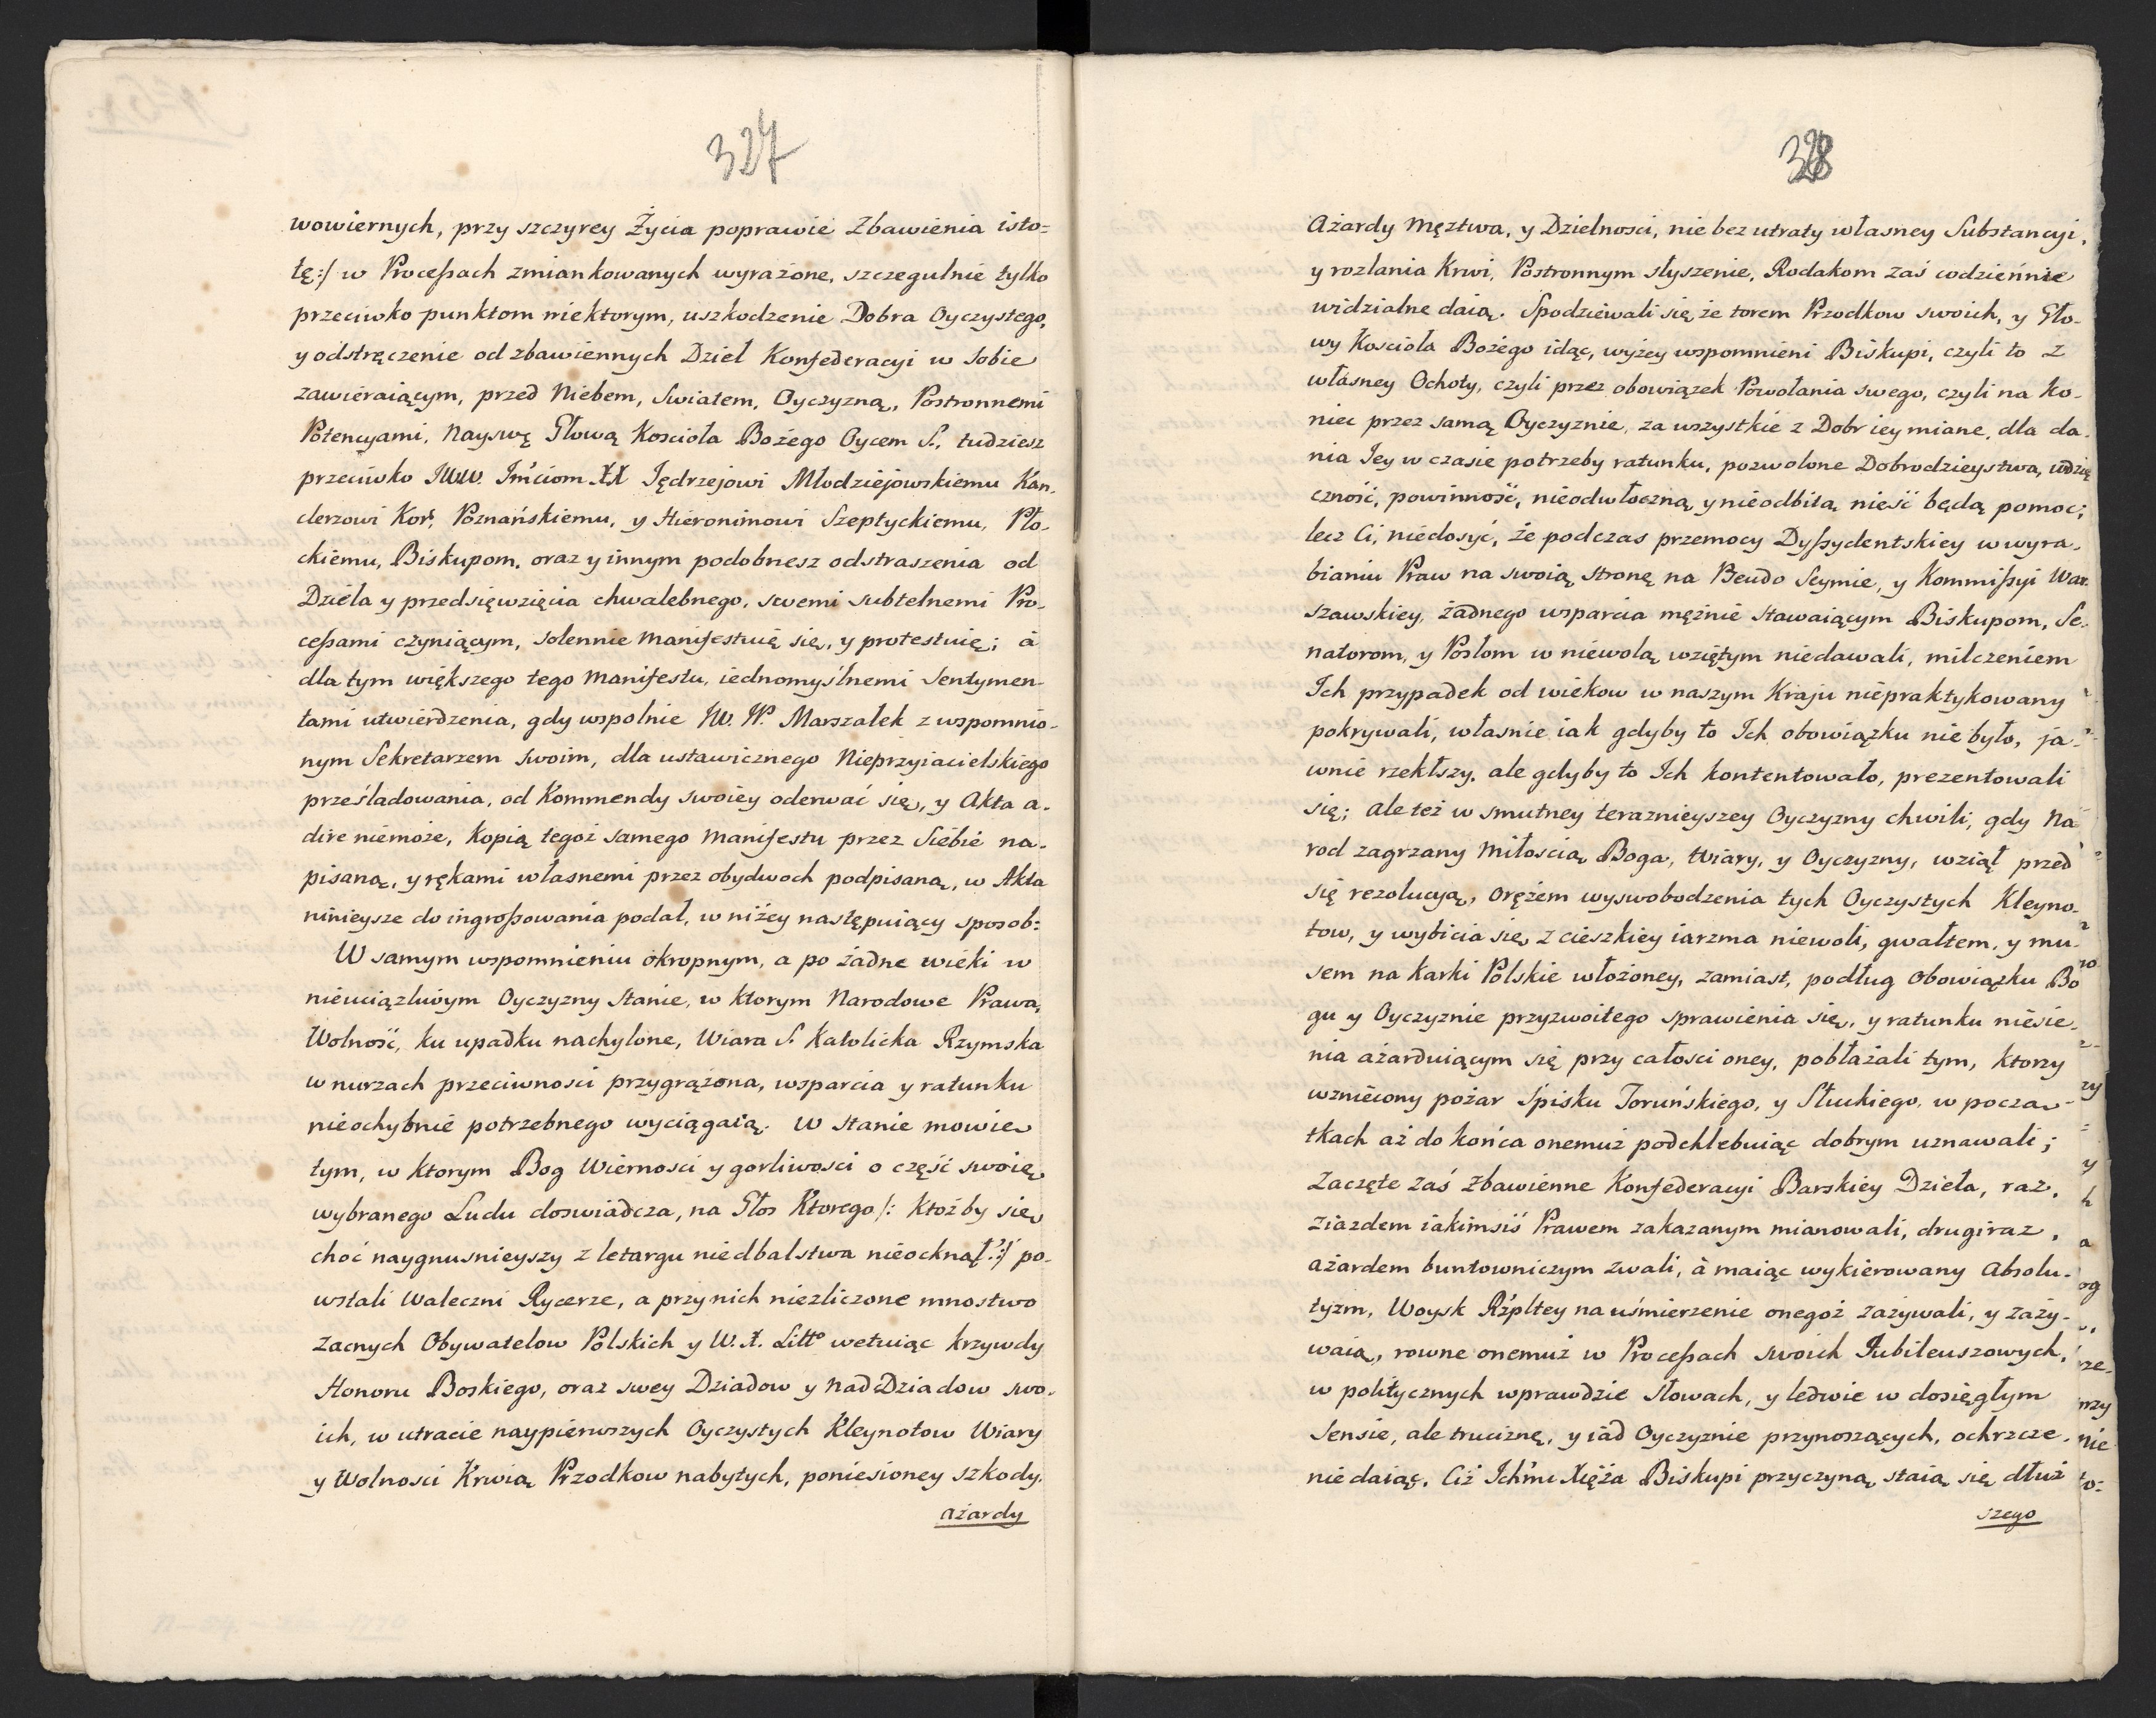 327
wowiernych, przy szczyrey Życia poprawie Zbawienia isto=
tę:/ w Processach zmiankowanych wyrażone, szczegulnie tylko
przeciwko punktom niektorym, uszkodzenie Dobra Oyczystego,
y odstręczenie od zbawiennych Dzieł Konfederacyi w sobie
zawieraiącym, przed Niebem, Swiatem, Oyczyzną, Postronnemi
Potencyami, Nayswę Głową Kosciola Bożego Oycem S. tudziesz
przeciwko JWW. Imciom XX Jędrzejowi Młodziejowskiemu Kan,
clerzowi Kor, Poznańskiemu, y Hieronimowi Szeptyckiemu, Pło-
ckiemu, Biskupom, oraz y innym podobnesz odstraszenia od
Dzieła y przedsięwzięcia chwalebnego, swemi subtelnemi Pro-
cessami czyniącym, solennie manifestuię się, y protestuię; à
dla tym większego tego Manifestu, iednomyślnemi Sentymen-
tami utwierdzenia, gdy wspolnie JW. JP. Marszałek z wspomnio-
nym Sekretarzem swoim, dla ustawicznego Nieprzyiacielskiego
prześladowania, od Kommendy swoiey oderwać się, y Akta a-
dire niemoże, Kopią tegoż samego Manifestu przez Siebie na-
pisaną, y rękami własnemi przez obydwoch podpisaną, w Akta
ninieysze do ingrossowania podał, w niżey następuiący sposob:
W samym wspomnieniu okropnym, a po żadne wieki w
nieuciązliwym Oyczyzny Stanie, w ktorym Narodowe Prawa,
Wolność, ku upadku nachylone, Wiara S. Katolicka Rzymska
w nurzach przeciwnosci przygrążona, wsparcia y ratunku
nieochybnie potrzebnego wyciągaią. W stanie mowię
tym, w ktorym Bog Wiernosci y gorliwosci o część swoię
wybranego Ludu doswiadcza, na Głos Ktorego /: Ktożby się
choć naygnusnieyszy z letargu niedbalstwa nieocknął?:/ po-
wstali Waleczni Rycerze, a przy nich niezliczone mnostwo
zacnych Obywatelow Polskich y W. X. Litto wetuiąc krzywdy
Honoru Boskiego, oraz swey Dziadow y NadDziadow swo-
ich, w utracie naypierwszych Oyczystych Kleynotow Wiary
y Wolnosci Krwią Przodkow nabytych, poniesioney szkody,
ażardy
328
Ażardy Męztwa, y Dzielnosci, nie bez utraty własney Substancyi,
y rozlania Krwi, Postronnym słyszenie, Rodakom zaś codziennie
widzialne daią. Spodziewali się że torem Przodkow swoich, y Gło-
wy Kosciola Bożego idąc, wyżey wspomnieni Biskupi, czyli to z
własney Ochoty, czyli przez obowiązek Powołania swego, czyli na ko-
niec przez samą Oyczyznie, za wszystkie z Dobr iey miane, dla da-
nia Jey w czasie potrzeby ratunku, pozwolone Dobrodzieystwa, wdzię
czność, powinność, nieodwłoczną y nieodbitą nieść będą pomoc;
lecz Ci, niedosyć, że podczas przemocy Dyssydentskiey w wyra-
bianiu Praw na swoią stronę na Pseudo Seymie, y Kommissyi War-
szawskiey, żadnego wsparcia mężnie stawaiącym Biskupom, Se-
natorom, y Posłom w niewolą wziętym niedawali, milczeniem
Ich przypadek od wiekow w naszym Kraju niepraktykowany
pokrywali, własnie iak gdyby to Ich obowiązku nie było, ja-
wnie rzekłszy, ale gdyby to Ich kontentowało, prezentowali
się; ale też w smutney teraznieyszey Oyczyzny chwili, gdy Na
rod zagrzany Miłoscią Boga, Wiary, y Oyczyzny, wziął przed
się rezolucyą, orężem wyswobodzenia tych Oyczystych Kleyno-
tow, y wybicia się z cieszkiey iarzma niewoli, gwałtem, y mu-
sem na karki Polskie włożoney, zamiast, podług Obowiązku Bo
gu y Oyczyznie przyzwoitego sprawienia się, y ratunku niesie-
nia ażarduiącym się przy całosci oney, pobłażali tym, ktorzy
wzniecony pożar Spisku Toruńskiego, y Słuckiego, w począ-
tkach aż do końca onemuż podchlebuiąc dobrym uznawali;
Zaczęte zaś zbawienne Konfederacyi Barskiey Dzieła, raz,
ziazdem iakimsiś Prawem zakazanym mianowali, drugi raz,
ażardem buntowniczym zwali, à maiąc wykierowany Absolu-
tyzm, Woysk Rzpltey na uśmierzenie onegoż zażywali, y zaży-
waią, rowne onemuż w Processach swoich Jubileuszowych,
w politycznych wprawdzie Słowach, y ledwie w dosięgłym
Sensie, ale truciznę, y iad Oyczyznie przynoszących, ochrzcze-
nie daiąc. Ciż Ichmc Xięża Biskupi przyczyną staią się dłuż
szego